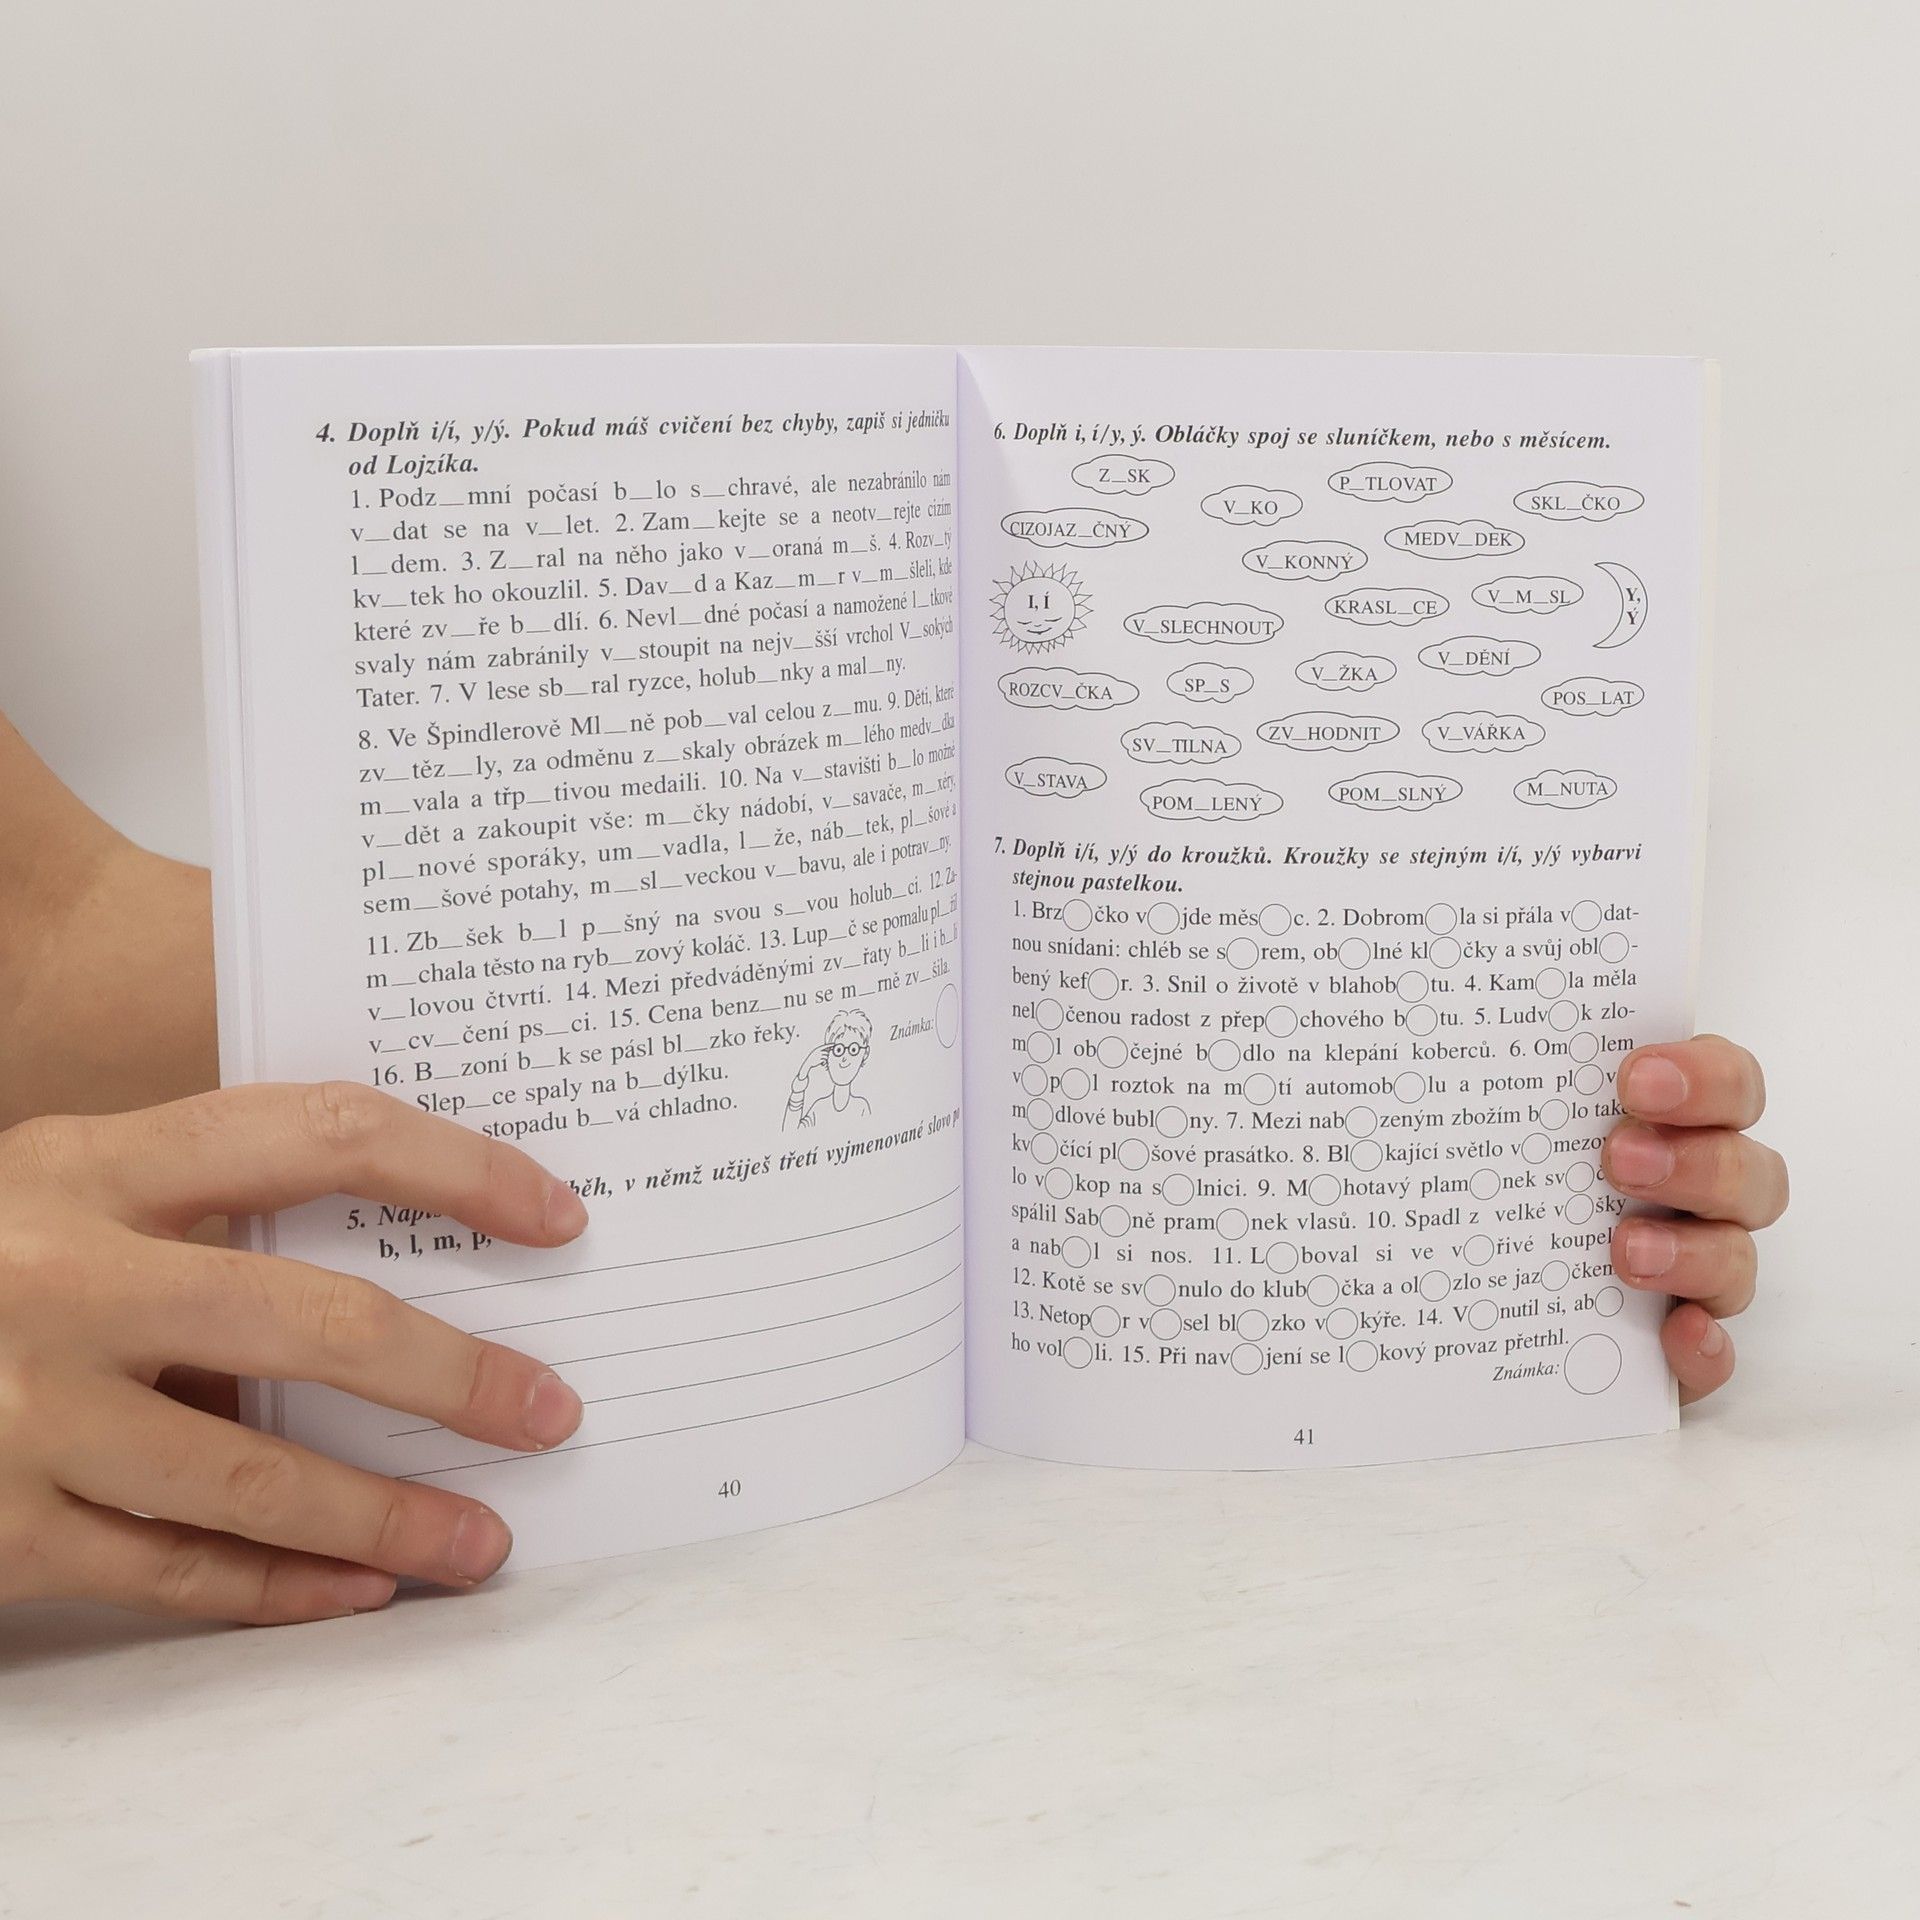 4. Doplň i/í, y/ý. Pokud máš cvičení bez chyby, zapiš si jedničku
od Lojzíka.
1. Podz__mní počasí b__lo s__chravé, ale nezabránilo nám
v__dat se na v__let. 2. Zam__kejte se a neotv__rejte cizím
l__dem. 3. Z__ral na něho jako v__oraná m__š. 4. Rozv__tý
kv__tek ho okouzlil. 5. Dav__d a Kaz__m__r v__m__šleli, kde
které zv__ře b__dlí. 6. Nevl__dné počasí a namožené l__tkové
svaly nám zabránily v__stoupit na nejv__šší vrchol V__sokých
Tater. 7. V lese sb__ral ryzce, holub__nky a mal__ny.
8. Ve Špindlerově Ml__ně pob__val celou z__mu. 9. Děti, které
zv__těz__ly, za odměnu z__skaly obrázek m__lého medv__dka
m__vala a třp__tivou medaili. 10. Na v__stavišti b__lo možné
v__dět a zakoupit vše: m__čky nádobí, v__savače, m__xéry,
pl__nové sporáky, um__vadla, l__že, náb__tek, pl__šové a
sem__šové potahy, m__sl__veckou v__bavu, ale i potrav__ny.
11. Zb__šek b__l p__šný na svou s__vou holub__ci. 12. Za-
m__chala těsto na ryb__zový koláč. 13. Lup__č se pomalu pl__žil
v__lovou čtvrtí. 14. Mezi předváděnými zv__řaty b__li i b__lí
v__cv__čení ps__ci. 15. Cena benz__nu se m__rně zv__šila.
16. B__zoní b__k se pásl bl__zko řeky.
Slep__ce spaly na b__dýlku.
stopadu b__vá chladno.
Známka:
5. běh, v němž užiješ třetí vyjmenované slovo
b, l, m, p,
40
6. Doplň i, í/y, ý. Obláčky spoj se sluníčkem, nebo s měsícem.
Z__SK
P__TLOVAT
V__KO
SKL__ČKO
CIZOJAZ__ČNÝ
MEDV__DEK
V__KONNÝ
I, Í
V__M__SL
Y,
Ý
KRASL__CE
V__SLECHNOUT
V__DĚNÍ
V__ŽKA
ROZCV__ČKA
SP__S
POS__LAT
SV__TILNA
ZV__HODNIT
V__VÁŘKA
V__STAVA
POM__LENÝ
POM__SLNÝ
M__NUTA
7. Doplň i/í, y/ý do kroužků. Kroužky se stejným i/í, y/ý vybarvi
stejnou pastelkou.
1. Brz◯čko v◯jde měs◯c. 2. Dobrom◯la si přála v◯dat-
nou snídani: chléb se s◯rem, ob◯lné kl◯čky a svůj obl◯-
bený kef◯r. 3. Snil o životě v blahob◯tu. 4. Kam◯la měla
nel◯čenou radost z přep◯chového b◯tu. 5. Ludv◯k zlo-
m◯l ob◯čejné b◯dlo na klepání koberců. 6. Om◯lem
v◯p◯l roztok na m◯tí automob◯lu a potom pl◯v
m◯dlové bubl◯ny. 7. Mezi nab◯zeným zbožím b◯lo také
kv◯čící pl◯šové prasátko. 8. Bl◯kající světlo v◯mezo
lo v◯kop na s◯lnici. 9. M◯hotavý plam◯nek sv◯č
spálil Sab◯ně pram◯nek vlasů. 10. Spadl z velké v◯šky
a nab◯l si nos. 11. L◯boval si ve v◯řivé koupel
12. Kotě se sv◯nulo do klub◯čka a ol◯zlo se jaz◯čkem
13. Netop◯r v◯sel bl◯zko v◯kýře. 14. V◯nutil si, ab◯
ho vol◯li. 15. Při nav◯jení se l◯kový provaz přetrhl.
Známka:
41